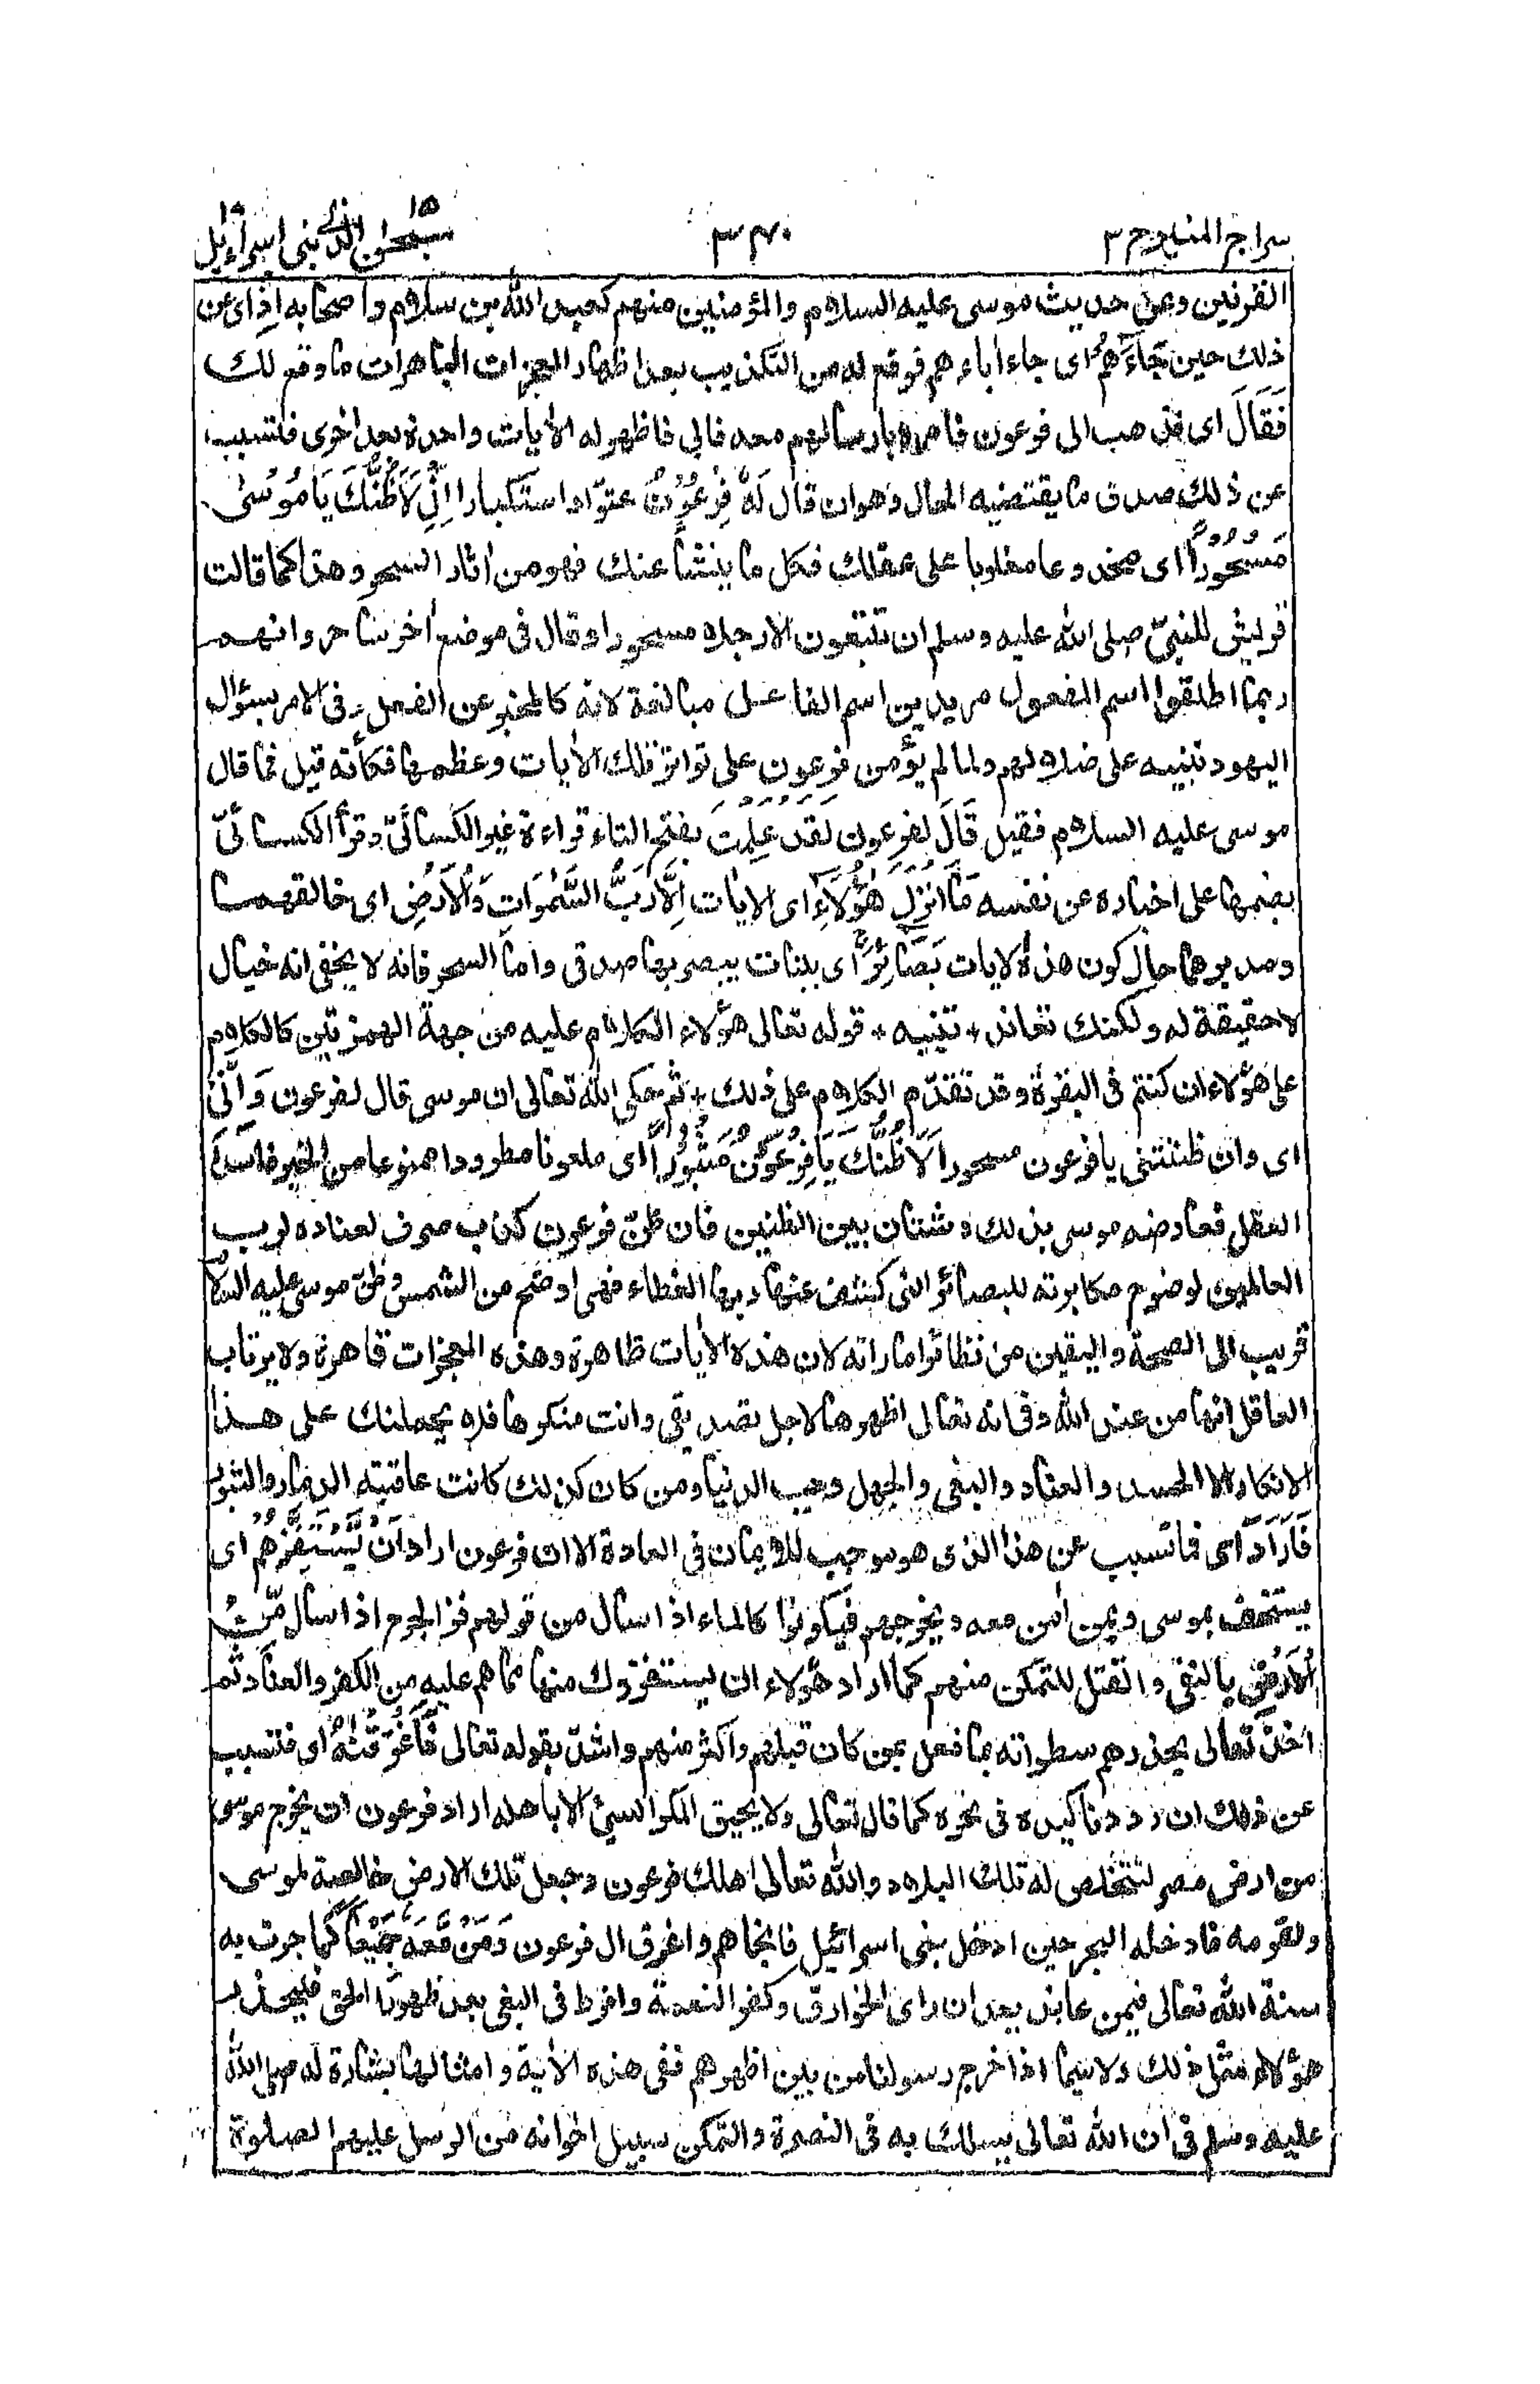 سراج المنير ج ٣
٣٤٠
سبحٰن الذی ١٥ بنی اسرآءیل ١٧
القرنين وعن حديث موسى عليه السلام والمؤمنين منهم كعبد الله بن سلام واصحابه اِذْ اى عن
ذلك حين جَآءَهُمْ اى جاء اباءهم فوقع له من التكذيب بعد اظهار المعجزات الباهرات ما وقع لك
فَقَالَ اى فذهب الى فرعون فامره بارسالهم معه فابى فاظهر له الاٰيات واحدة بعد اخرى فتسبب
عن ذلك صدق ما يقتضيه الحال وهو ان قال لَهٗ فِرْعَوْنُ عتوّا واستكبارا اِنِّيْ لَاَظُنُّكَ يَا مُوْسٰى
مَسْحُوْرًا اى مخدوعا مغلوبا على عقلك فكل ما ينشأ عنك فهو من اٰثار السحر وهذا كما قالت
قريش للنبىّ صلى الله عليه وسلم ان تتبعون الا رجلا مسحورا وقال فى موضع اٰخر ساحر وانهم
ربما اطلقوا اسم المفعول مريدين اسم الفاعل مبالغة لانه كالمخبر عن الفعل وفى الامر بسؤال
اليهود تنبيه على ضلالهم ولما لم يؤمن فرعون على تواتر تلك الاٰيات وعظمها فكأنه قيل فما قال
موسى عليه السلام فقيل قَالَ لفرعون لَقَدْ عَلِمْتَ بفتح التاء قراءة غير الكسائىّ وقرأ الكسائىّ
بضمها على اخباره عن نفسه مَآ اَنْزَلَ هٰٓؤُلَآءِ اى الاٰيات اِلَّا رَبُّ السَّمٰوَاتِ وَالْاَرْضِ اى خالقهما
ومدبرهما حال كون هذه الاٰيات بَصَآئِرَ اى بينات يبصر بها صدقى واما السحر فانه لا يخفى انه خيال
لا حقيقة له ولكنك تعاند + تنبيه + قوله تعالى هؤلاء الكلام عليه من جهة الهمزتين كالكلام
على هؤلاء ان كنتم فى البقرة وقد تقدّم الكلام على ذلك + ثم حكى الله تعالى ان موسى قال لفرعون وَاِنِّيْ
اى وان ظننتنى يا فرعون مسحورا لَاَظُنُّكَ يَا فِرْعَوْنُ مَثْبُوْرًا اى ملعونا مطرودا ممنوعا من الخير فاسد
العقل فعارضه موسى بذلك وشتان بين الظنين فان ظنّ فرعون كذب صرف لعناده لرب
العالمين لوضوح مكابرته للبصائر التى كشف عنها ربها الغطاء فهى اوضح من الشمس وظنّ موسى عليه السلام
قريب الى الصحة واليقين من تظاهر اماراته لان هذه الاٰيات ظاهرة وهذه المعجزات قاهرة ولا يرتاب
العاقل انها من عند الله وفى انه تعالى اظهرها لاجل تصديقى وانت منكرها فلا يحملنك على هذا
الانكار الا الحسد والعناد والبغى والجهل وحب الدنيا ومن كان كذلك كانت عاقبته الدمار والثبور
فَاَرَادَ اى فما تسبب عن هذا الذى هو موجب للايمان فى العادة الا ان فرعون اراد اَنْ يَّسْتَفِزَّهُمْ اى
يستخف بموسى وبمن اٰمن معه ويخرجهم فيكونوا كالماء اذا سال من قولهم فز الجرح اذا سال مِّنَ
الْاَرْضِ بالنفى والقتل للتمكن منهم كما اراد هؤلاء ان يستفزوك منها مما هم عليه من الكفر والعناد ثم
اخذ تعالى يحذرهم سطواته بما فعل بمن كان قبلهم واكثر منهم واشدّ بقوله تعالى فَاَغْرَقْنٰهُ اى فتسبب
عن ذلك ان رددنا كيده فى نحره كما قال تعالى ولا يحيق المكر السيئ الا باهله اراد فرعون ان يخرج موسى
من ارض مصر لتتخلص له تلك البلاد والله تعالى اهلك فرعون وجعل تلك الارض خالصة لموسى
ولقومه فادخله البحر حين ادخل بنى اسرائيل فانجاهم واغرق اٰل فرعون وَمَنْ مَّعَهٗ جَمِيْعًا كما جرت به
سنة الله تعالى فيمن عاند بعد ان راى الخوارق وكفر النعمة وافرط فى البغى بعد ظهور الحق فليحذر
هؤلاء مثل ذلك ولا سيما اذا خرج رسولنا من بين اظهرهم ففى هذه الاٰية وامثالها بشارة له صلى الله
عليه وسلم فى ان الله تعالى يسلك به فى النصرة والتمكن سبيل اخوانه من الرسل عليهم الصلوة